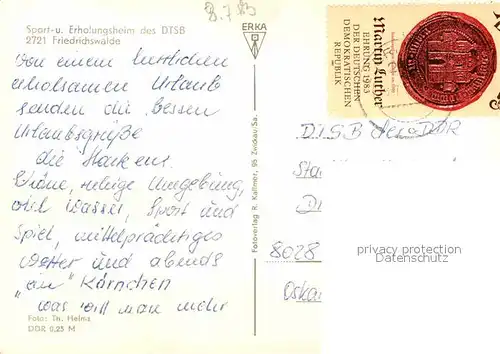 8.7.83
Sport- u. Erholungsheim des DTSB
2721 Friedrichswalde
Von einem herrlichen
erholsamen Urlaub
senden die besten
Urlaubsgrüße
die Harkens.
Schöne, ruhige Umgebung,
viel Wasser, Sport und
Spiel, mittelprächtiges
Wetter und abends
"ein" Körnchen
"was will man mehr
Foto: Th. Helms
DDR 0,25 M
ERKA
Fotoverlag R. Kallmer, 95 Zwickau/Sa.
Martin Luther
EHRUNG 1983
DER DEUTSCHEN
DEMOKRATISCHEN
REPUBLIK
DTSB der DDR
8028
Oska
privacy protection